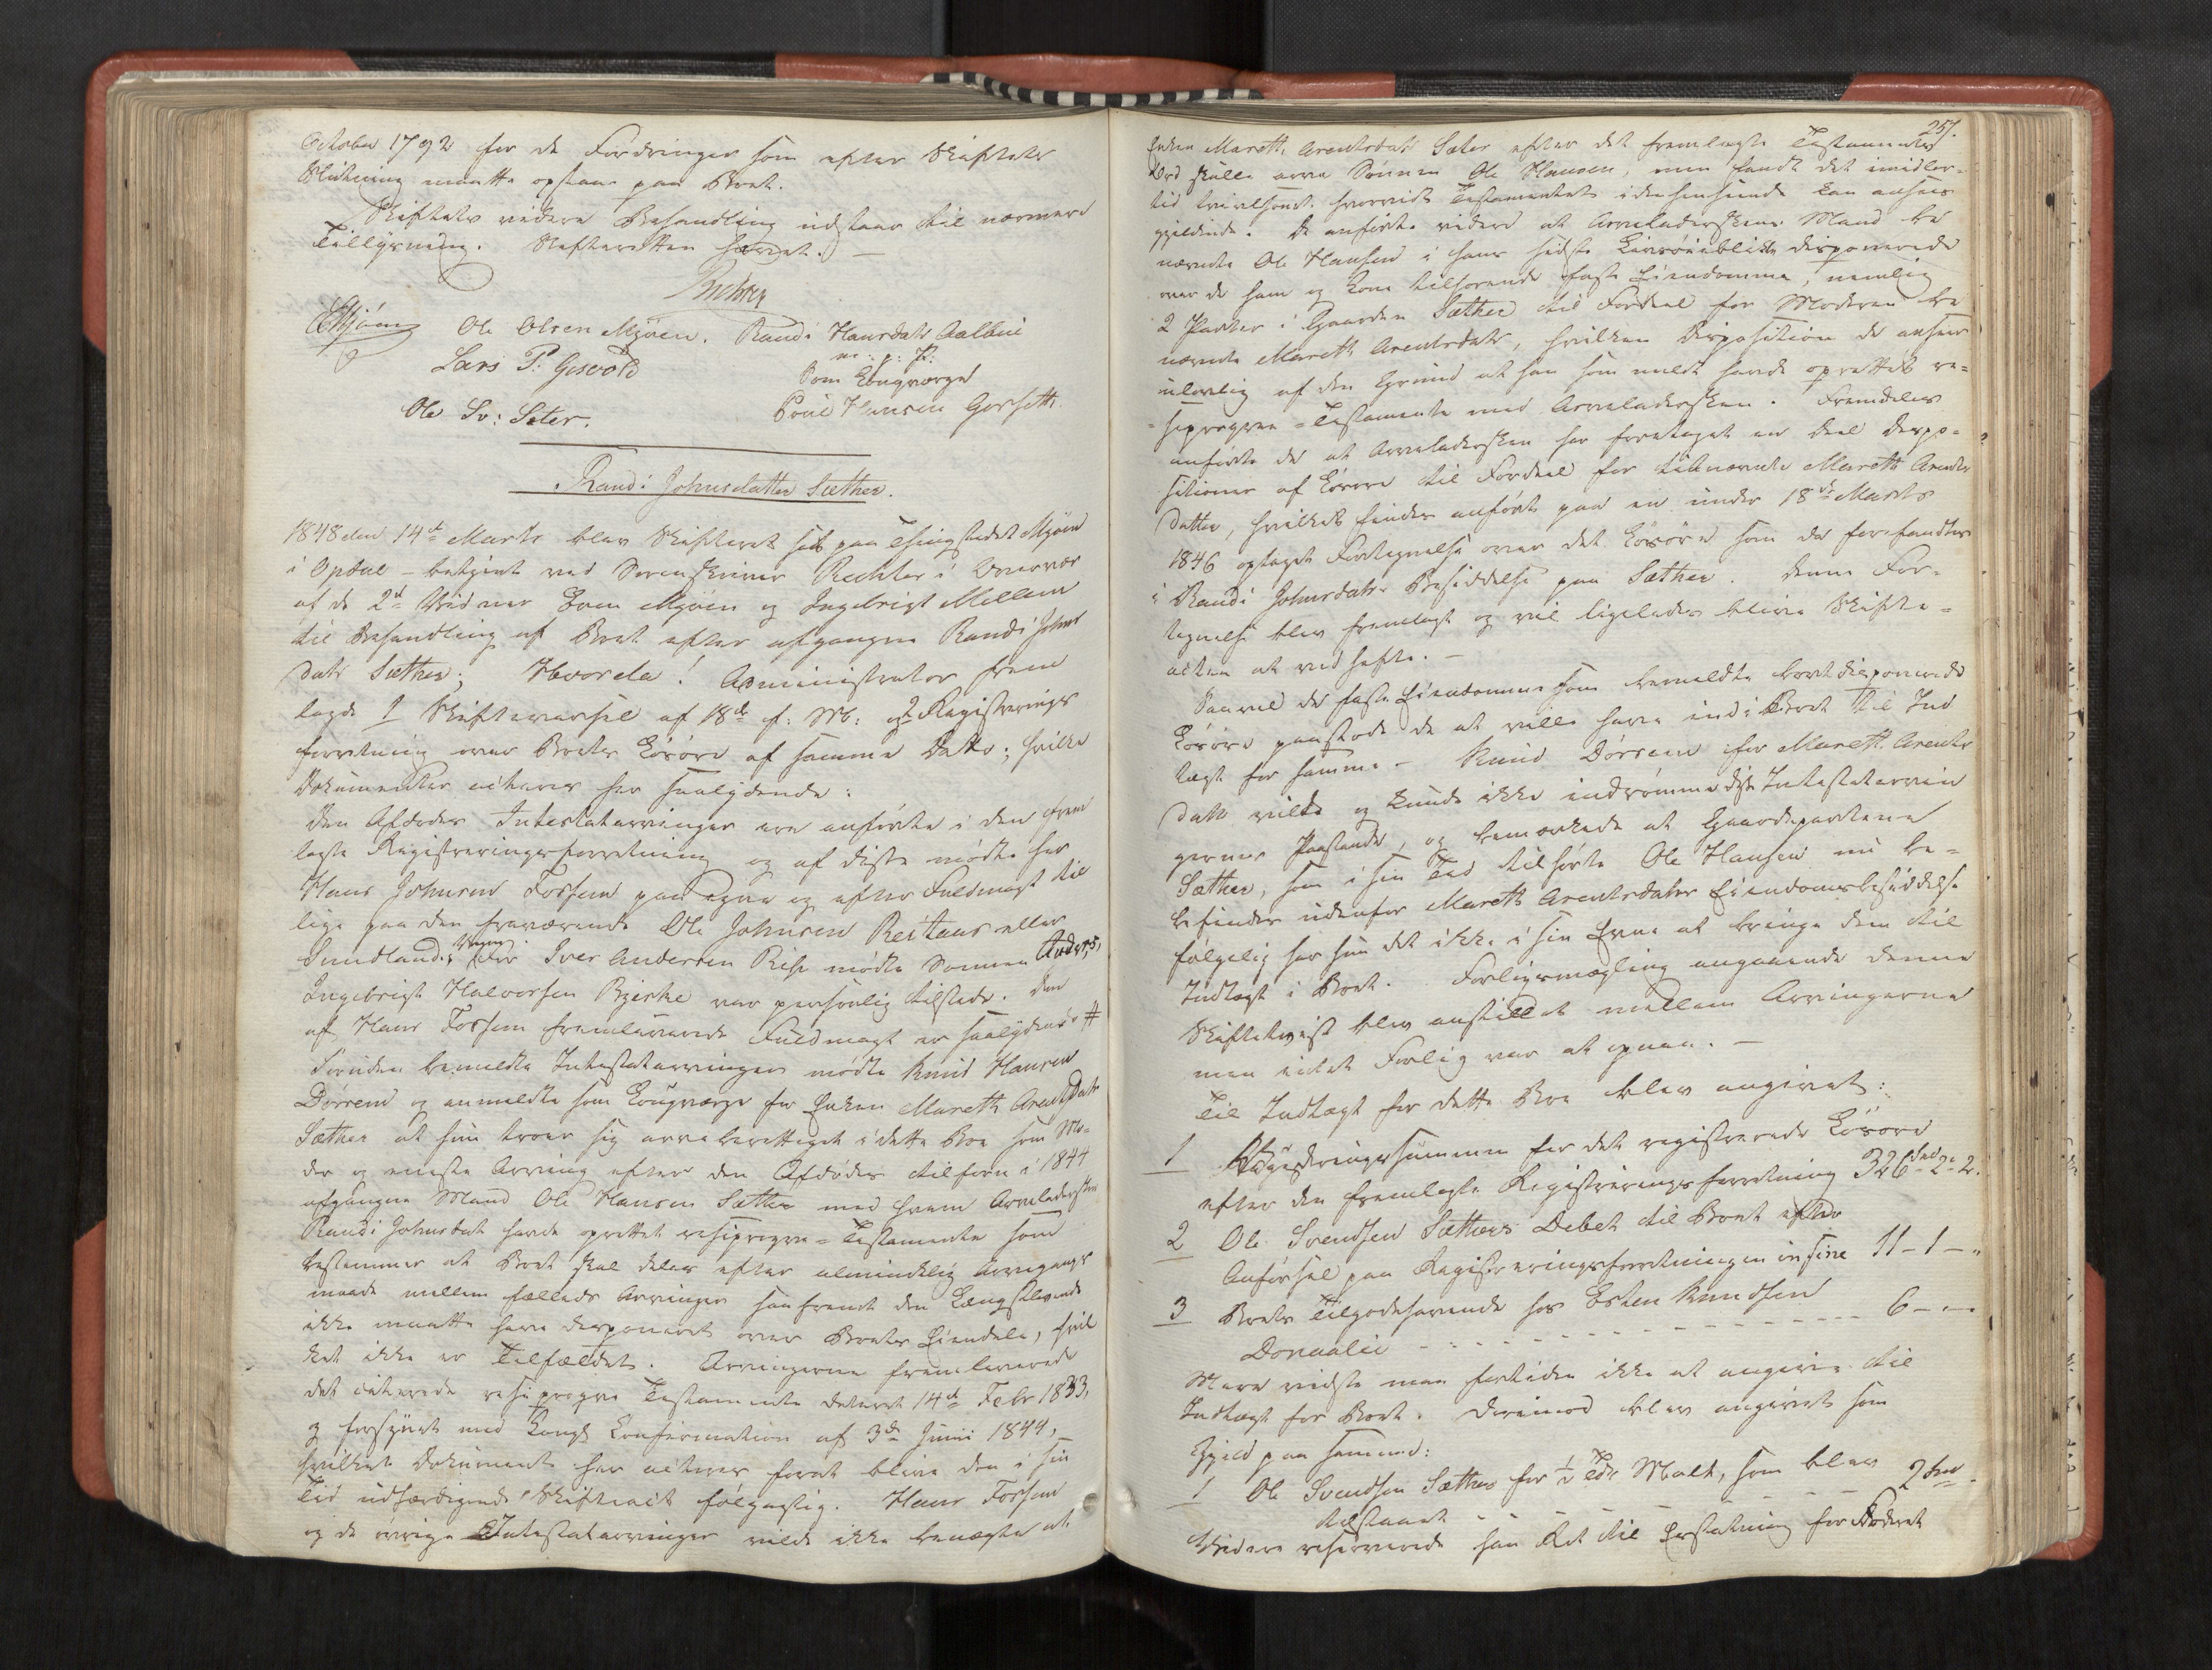 October 1792 for de Fordringer som efter Skiftets
Slutning maatte opstaae paa Boet.
Skiftets videre Behandling udstaar til nærmere
Tillysning. Skifteretten hævet. —
Richter
Ole Olsen Mjøen. Randi Hansdatr Aalbui
m: f: P:
Lars P: Gisvold
som Laugværge
Ole Sv: Seter.
Poul Hansen Gorseth
Randi Johnsdatter Sæther.
1848 den 14de Marts blev Skifteret sat paa Thingstedet Mjøen
i Opdal – betjent ved Sorenskriver Richter i Overvær
af de 2de Vidner Even Mjøen og Ingebrigt Mellem
til Behandling af Boet efter afgangne Randi Johns
datr Sæther; Hvorda! Administrator frem
lagde 1 Skiftevarsel af 18de f: M: og 2 Registrerings
forretning over Boets Løsøre af samme Dato; hvilke
Dokumenter acteres her saalydende:
Den Afdødes Intestatarvinger ere anførte i den frem
lagte Registreringsforretning og af disse mødte her
Hans Johnsen Fossem paa egne og efter Fuldmagt til
lige paa den fraværende Ole Johnsen Reitaas eller
Sundlands Vegne. For Iver Andersen Rise mødte Sønnen Anders,
Ingebrigt Halvorsen Bjerke var personlig tilstede. Den
af Hans Fossem fremleverede Fuldmagt er saalydende #
Foruden bemeldte Intestatarvinger mødte Knud Hansen
Dørrem og anmeldte som Laugværge for Enken Mareth Arentsdatr
Sæther at hun troer sig arveberettiget i dette Boe som Mo-
der og eneste Arving efter den Afdødes tilforn i 1844
afgangne Mand Ole Hansen Sæther med hvem Arveladersken
Randi Johnsdatr havde oprettet resiprogve = Testamente som
bestemmer at Boet skal deles efter almindelig Arvegangs
maade mellem fælleds Arvinger saafremt den Længstlevende
ikke maatte have disponeret over Boets Eiendele, hvil
ket ikke er Tilfældet. Arvingerne fremleverede
det citerede resiprogve Testamente dateret 14de Febr 1833,
og forsynet med Kongl Confirmation af 3de Juni 1844,
hvilket Dokument her acteres forat blive den i sin
Tid udfærdigende Skifteact følgagtig. Hans Fossem
og de øvrige Intestatarvinger vilde ikke benægte at
257.
Enken Mareth Arentsdatr Sæter efter det fremlagte Testamentes
Ord skulle arve Sønnen Ole Hansen, men fandt det imidler-
tid tvivlsomt hvorvidt Testamentet i den henseende kan ansees
gjeldende. De anførte videre at Arveladerskens Mand be
nævnte Ole Hansen i hans sidste Livsøieblikke disponerede
over de ham og Kone tilhørende faste Eiendomme, nemlig
2 Parter i Gaarden Sæther til Fordeel for Moderen be
nævnte Mareth Arentsdatr, hvilken Disposition de ansaae
ulovlig af den Grund at han som meldt havde oprettet re-
siprogve = Testamente med Arveladersken. Fremdeles
anførte de at Arveladersken har foretaget en Deel dispo-
sitioner af Løsøre til Fordeel for bemeldte Mareth Arents
datter, hvilket findes anført paa en under 18de Marts
1846 optaget Fortegnelse over det Løsøre som da forefandtes
i Randi Johnsdatrs Besiddelse paa Sæther. Denne For-
tegnelse blev fremlagt og vil ligeledes blive Skifte-
acten at vedhefte. —
Saavel de faste Eiendomme som bemeldte bortdisponerede
Løsøre paastod de at ville have ind i Boet til Ind
tægt for samme – Knud Dørrem for Mareth Arents
datr vilde og kunde ikke indrømme disse Intestatarvin
gernes Paastande, og bemærkede at Gaardeparterne
Sæther, som i sin Tid tilhørte Ole Hansen nu be-
befinder udenfor Mareth Arentsdatrs Eiendomsbesiddelse
følgelig har hun det ikke i sin Evne at bringe dem til
Indtægt i Boet. Forligsmægling angaaende denne
Skiftetvist blev anstillet mellem Arvingerne
men intet Forlig var at opnaae. —
Til Indtægt for dette Boe blev angivet:
1 Vurderingssummen for det registrerede Løsøre
efter den fremlagte Registreringsforretning 326 Spd 2 – 2.
2 Ole Svendsen Sæthers Debet til Boet efter
Anførsel paa Registreringsforretningen in fine 11 – 1 – "
3 Boets Tilgodehavende hos Esten Knudsen
Donaalie - - - - - - 6 – –
Mere vidste man fortiden ikke at angive til
Indtægt for Boet. Derimod blev angivet som
Gjeld paa samme:
1 Ole Svendsen Sæther for ½ Tde Malt, som blev
tilstaaet - - - 2 Spd
Videre reserverede han Ret til Erstatning for Foderet